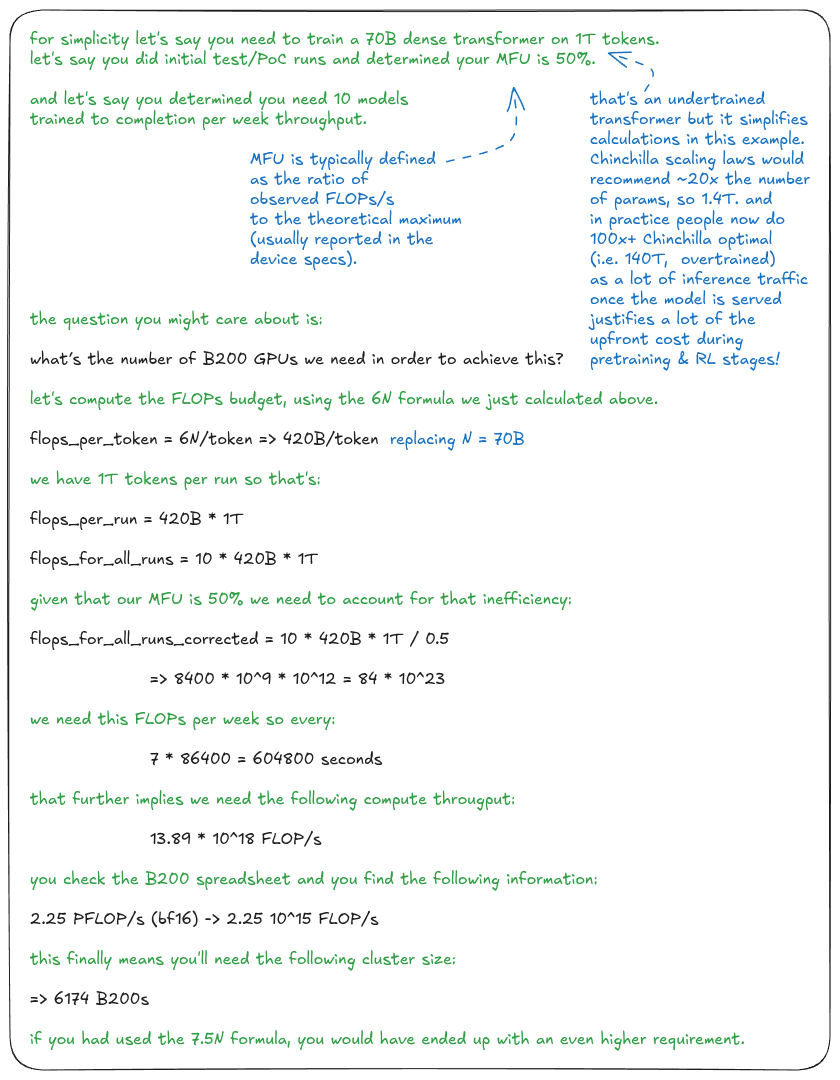 for simplicity let's say you need to train a 70B dense transformer on 1T tokens.
let's say you did initial test/PoC runs and determined your MFU is 50%.
and let's say you determined you need 10 models
trained to completion per week throughput.
MFU is typically defined
as the ratio of
observed FLOPs/s
to the theoretical maximum
(usually reported in the
device specs).
that's an undertrained
transformer but it simplifies
calculations in this example.
Chinchilla scaling laws would
recommend ~20x the number
of params, so 1.4T. and
in practice people now do
100x+ Chinchilla optimal
(i.e. 140T, overtrained)
as a lot of inference traffic
once the model is served
justifies a lot of the
upfront cost during
pretraining & RL stages!
the question you might care about is:
what's the number of B200 GPUs we need in order to achieve this?
let's compute the FLOPs budget, using the 6N formula we just calculated above.
flops_per_token = 6N/token => 420B/token replacing N = 70B
we have 1T tokens per run so that's:
flops_per_run = 420B * 1T
flops_for_all_runs = 10 * 420B * 1T
given that our MFU is 50% we need to account for that inefficiency:
flops_for_all_runs_corrected = 10 * 420B * 1T / 0.5
=> 8400 * 10^9 * 10^12 = 84 * 10^23
we need this FLOPs per week so every:
7 * 86400 = 604800 seconds
that further implies we need the following compute througput:
13.89 * 10^18 FLOP/s
you check the B200 spreadsheet and you find the following information:
2.25 PFLOP/s (bf16) -> 2.25 10^15 FLOP/s
this finally means you'll need the following cluster size:
=> 6174 B200s
if you had used the 7.5N formula, you would have ended up with an even higher requirement.